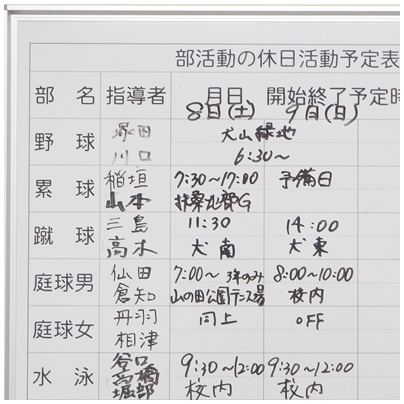 部活動の休日活動予定表
部 名 指導者 月日 開始終了予定時
8日(土) 9日(日)
野 球 塚田 犬山緑地
川口 6:30〜
累 球 稲垣 7:30〜17:00 予備日
山本 扶桑北部G
蹴 球 三島 11:30 14:00
高木 犬南 犬東
庭球男 仙田 7:00〜 3年のみ 8:00〜10:00
倉知 山の田公園テニス場 校内
庭球女 丹羽 同上 OFF
相津
水 泳 谷口 9:30〜12:00 9:30〜12:00
高橋 校内 校内
堀部